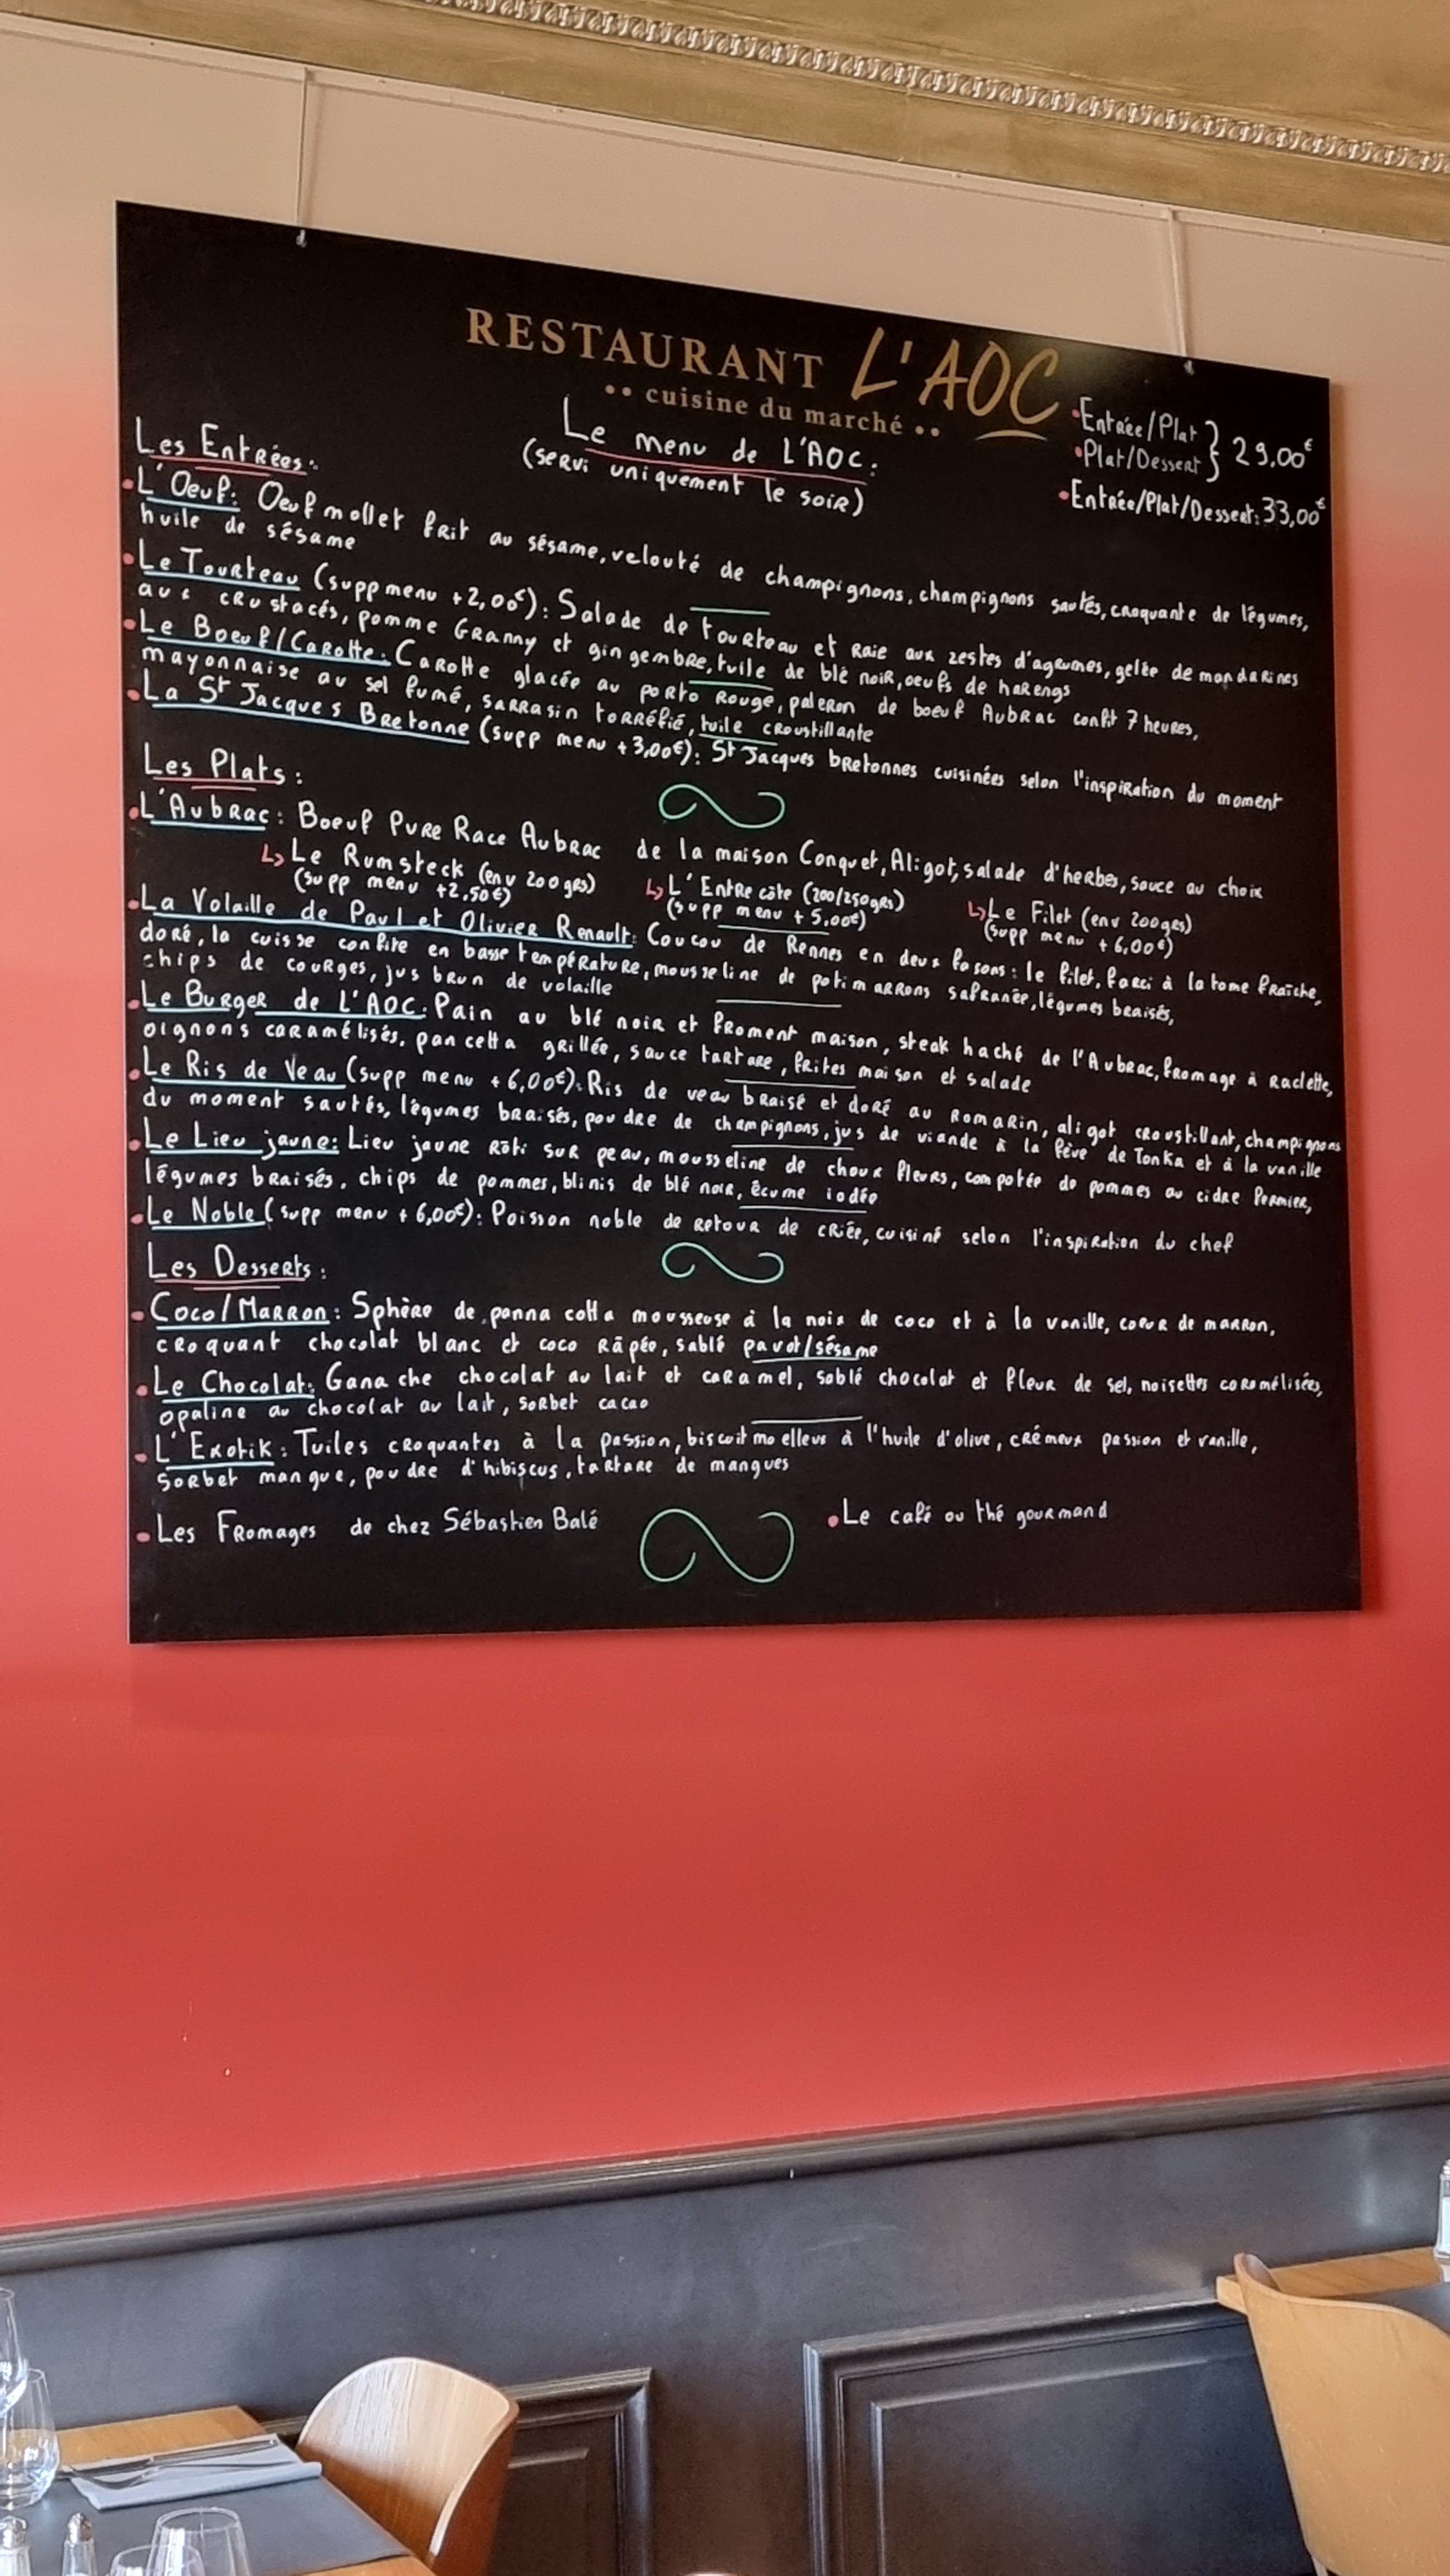 RESTAURANT L'AOC
•• cuisine du marché ••
Le menu de L'AOC:
(servi uniquement le soir)
•Entrée/Plat
•Plat/Dessert } 29,00€
•Entrée/Plat/Dessert: 33,00€
Les Entrées:
•L'Oeuf: Oeuf mollet frit au sésame, velouté de champignons, champignons sautés, craquante de légumes,
huile de sésame
•Le Tourteau (supp menu +2,00€): Salade de tourteau et Raie aux zestes d'agrumes, gelée de mandarines
aux crustacés, pomme Granny et gingembre, tuile de blé noir, oeufs de harengs
•Le Boeuf/Carotte: Carotte glacée au porto Rouge, paleron de boeuf Aubrac confit 7 heures,
mayonnaise au sel fumé, sarrasin torréfié, tuile croustillante
•La St Jacques Bretonne (supp menu +3,00€): St Jacques bretonnes cuisinées selon l'inspiration du moment
Les Plats:
•L'Aubrac: Boeuf Pure Race Aubrac de la maison Conquet, Aligot, salade d'herbes, sauce au choix
Le Rumsteck (env 200grs)
(supp menu +2,50€)
L'Entrecôte (200/250grs)
(supp menu +5,00€)
Le Filet (env 200grs)
(supp menu +6,00€)
•La Volaille de Paul et Olivier Renault: Coucou de Rennes en deux façons: le filet, farci à la tome fraîche,
doré, la cuisse confite en basse température, mousseline de potimarrons safranée, légumes braisés,
chips de courges, jus brun de volaille
•Le Burger de L'AOC: Pain au blé noir et froment maison, steak haché de l'Aubrac, fromage à Raclette,
oignons caramélisés, pancetta grillée, sauce tartare, frites maison et salade
•Le Ris de Veau (supp menu +6,00€): Ris de veau braisé et doré au Romarin, aligot croustillant, champignons
du moment sautés, légumes braisés, poudre de champignons, jus de viande à la fève de Tonka et à la vanille
•Le Lieu jaune: Lieu jaune Rôti sur peau, mousseline de choux fleurs, compotée de pommes au cidre fermier,
légumes braisés, chips de pommes, blinis de blé noir, écume iodée
•Le Noble (supp menu +6,00€): Poisson noble de retour de criée, cuisiné selon l'inspiration du chef
Les Desserts:
•Coco/Marron: Sphère de panna cotta mousseuse à la noix de coco et à la vanille, coeur de marron,
croquant chocolat blanc et coco râpée, sablé pavot/sésame
•Le Chocolat: Ganache chocolat au lait et caramel, sablé chocolat et fleur de sel, noisettes caramélisées,
opaline au chocolat au lait, sorbet cacao
•L'Exotik: Tuiles croquantes à la passion, biscuit moelleux à l'huile d'olive, crémeux passion et vanille,
sorbet mangue, poudre d'hibiscus, tartare de mangues
•Les Fromages de chez Sébastien Balé
•Le café ou thé gourmand